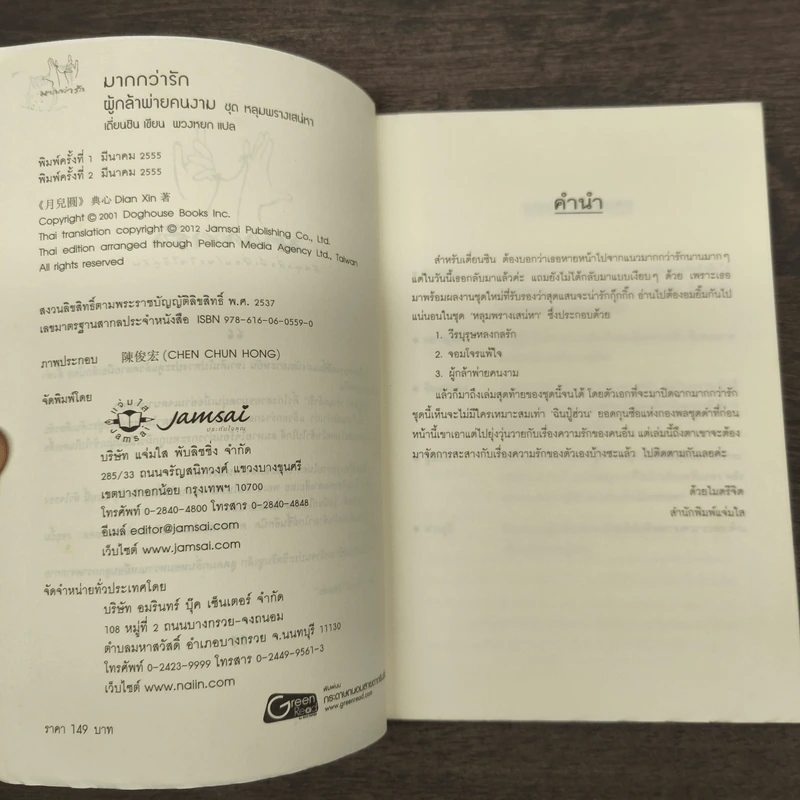 มากกว่ารัก
มากกว่ารัก
ผู้กล้าพ่ายคนงาม ชุด หลุมพรางเสน่หา
เตี่ยนซิน เขียน พวงหยก แปล
พิมพ์ครั้งที่ 1 มีนาคม 2555
พิมพ์ครั้งที่ 2 มีนาคม 2555
《月兒圓》 典心 Dian Xin 著
Copyright © 2001 Doghouse Books Inc.
Thai translation copyright © 2012 Jamsai Publishing Co., Ltd.
Thai edition arranged through Pelican Media Agency Ltd., Taiwan
All rights reserved
สงวนลิขสิทธิ์ตามพระราชบัญญัติลิขสิทธิ์ พ.ศ. 2537
เลขมาตรฐานสากลประจำหนังสือ ISBN 978-616-06-0559-0
ภาพประกอบ 陳俊宏 (CHEN CHUN HONG)
จัดพิมพ์โดย
แจ่มใส
JAMSAI
Jamsai
ประทับใจคุณ
บริษัท แจ่มใส พับลิชชิ่ง จำกัด
285/33 ถนนจรัญสนิทวงศ์ แขวงบางขุนศรี
เขตบางกอกน้อย กรุงเทพฯ 10700
โทรศัพท์ 0-2840-4800 โทรสาร 0-2840-4848
อีเมล์ editor@jamsai.com
เว็บไซต์ www.jamsai.com
จัดจำหน่ายทั่วประเทศโดย
บริษัท อมรินทร์ บุ๊ค เซ็นเตอร์ จำกัด
108 หมู่ที่ 2 ถนนบางกรวย-จงถนอม
ตำบลมหาสวัสดิ์ อำเภอบางกรวย จ.นนทบุรี 11130
โทรศัพท์ 0-2423-9999 โทรสาร 0-2449-9561-3
เว็บไซต์ www.naiin.com
Green
Read
พิมพ์บน
กระดาษถนอมสายตากรีนรี้ด
www.greenread.com
ราคา 149 บาท
คำนำ
สำหรับเตี่ยนซิน ต้องบอกว่าเธอหายหน้าไปจากแนวมากกว่ารักนานมากๆ
แต่ในวันนี้เธอกลับมาแล้วค่ะ แถมยังไม่ได้กลับมาแบบเงียบๆ ด้วย เพราะเธอ
มาพร้อมผลงานชุดใหม่ที่รับรองว่าสุดแสนจะน่ารักกุ๊กกิ๊ก อ่านไปต้องอมยิ้มกันไป
แน่นอนในชุด 'หลุมพรางเสน่หา' ซึ่งประกอบด้วย
1. วีรบุรุษหลงกลรัก
2. จอมโจรแพ้ใจ
3. ผู้กล้าพ่ายคนงาม
แล้วก็มาถึงเล่มสุดท้ายของชุดนี้จนได้ โดยตัวเอกที่จะมาปิดฉากมากกว่ารัก
ชุดนี้เห็นจะไม่มีใครเหมาะสมเท่า 'ฉินปู้ฮ่วน' ยอดกุนซือแห่งกองพลชุดดำที่ก่อน
หน้านี้เขาเอาแต่ไปยุ่งวุ่นวายกับเรื่องความรักของคนอื่น แต่เล่มนี้ถึงตาเขาจะต้อง
มาจัดการสะสางกับเรื่องความรักของตัวเองบ้างซะแล้ว ไปติดตามกันเลยค่ะ
ด้วยไมตรีจิต
สำนักพิมพ์แจ่มใส